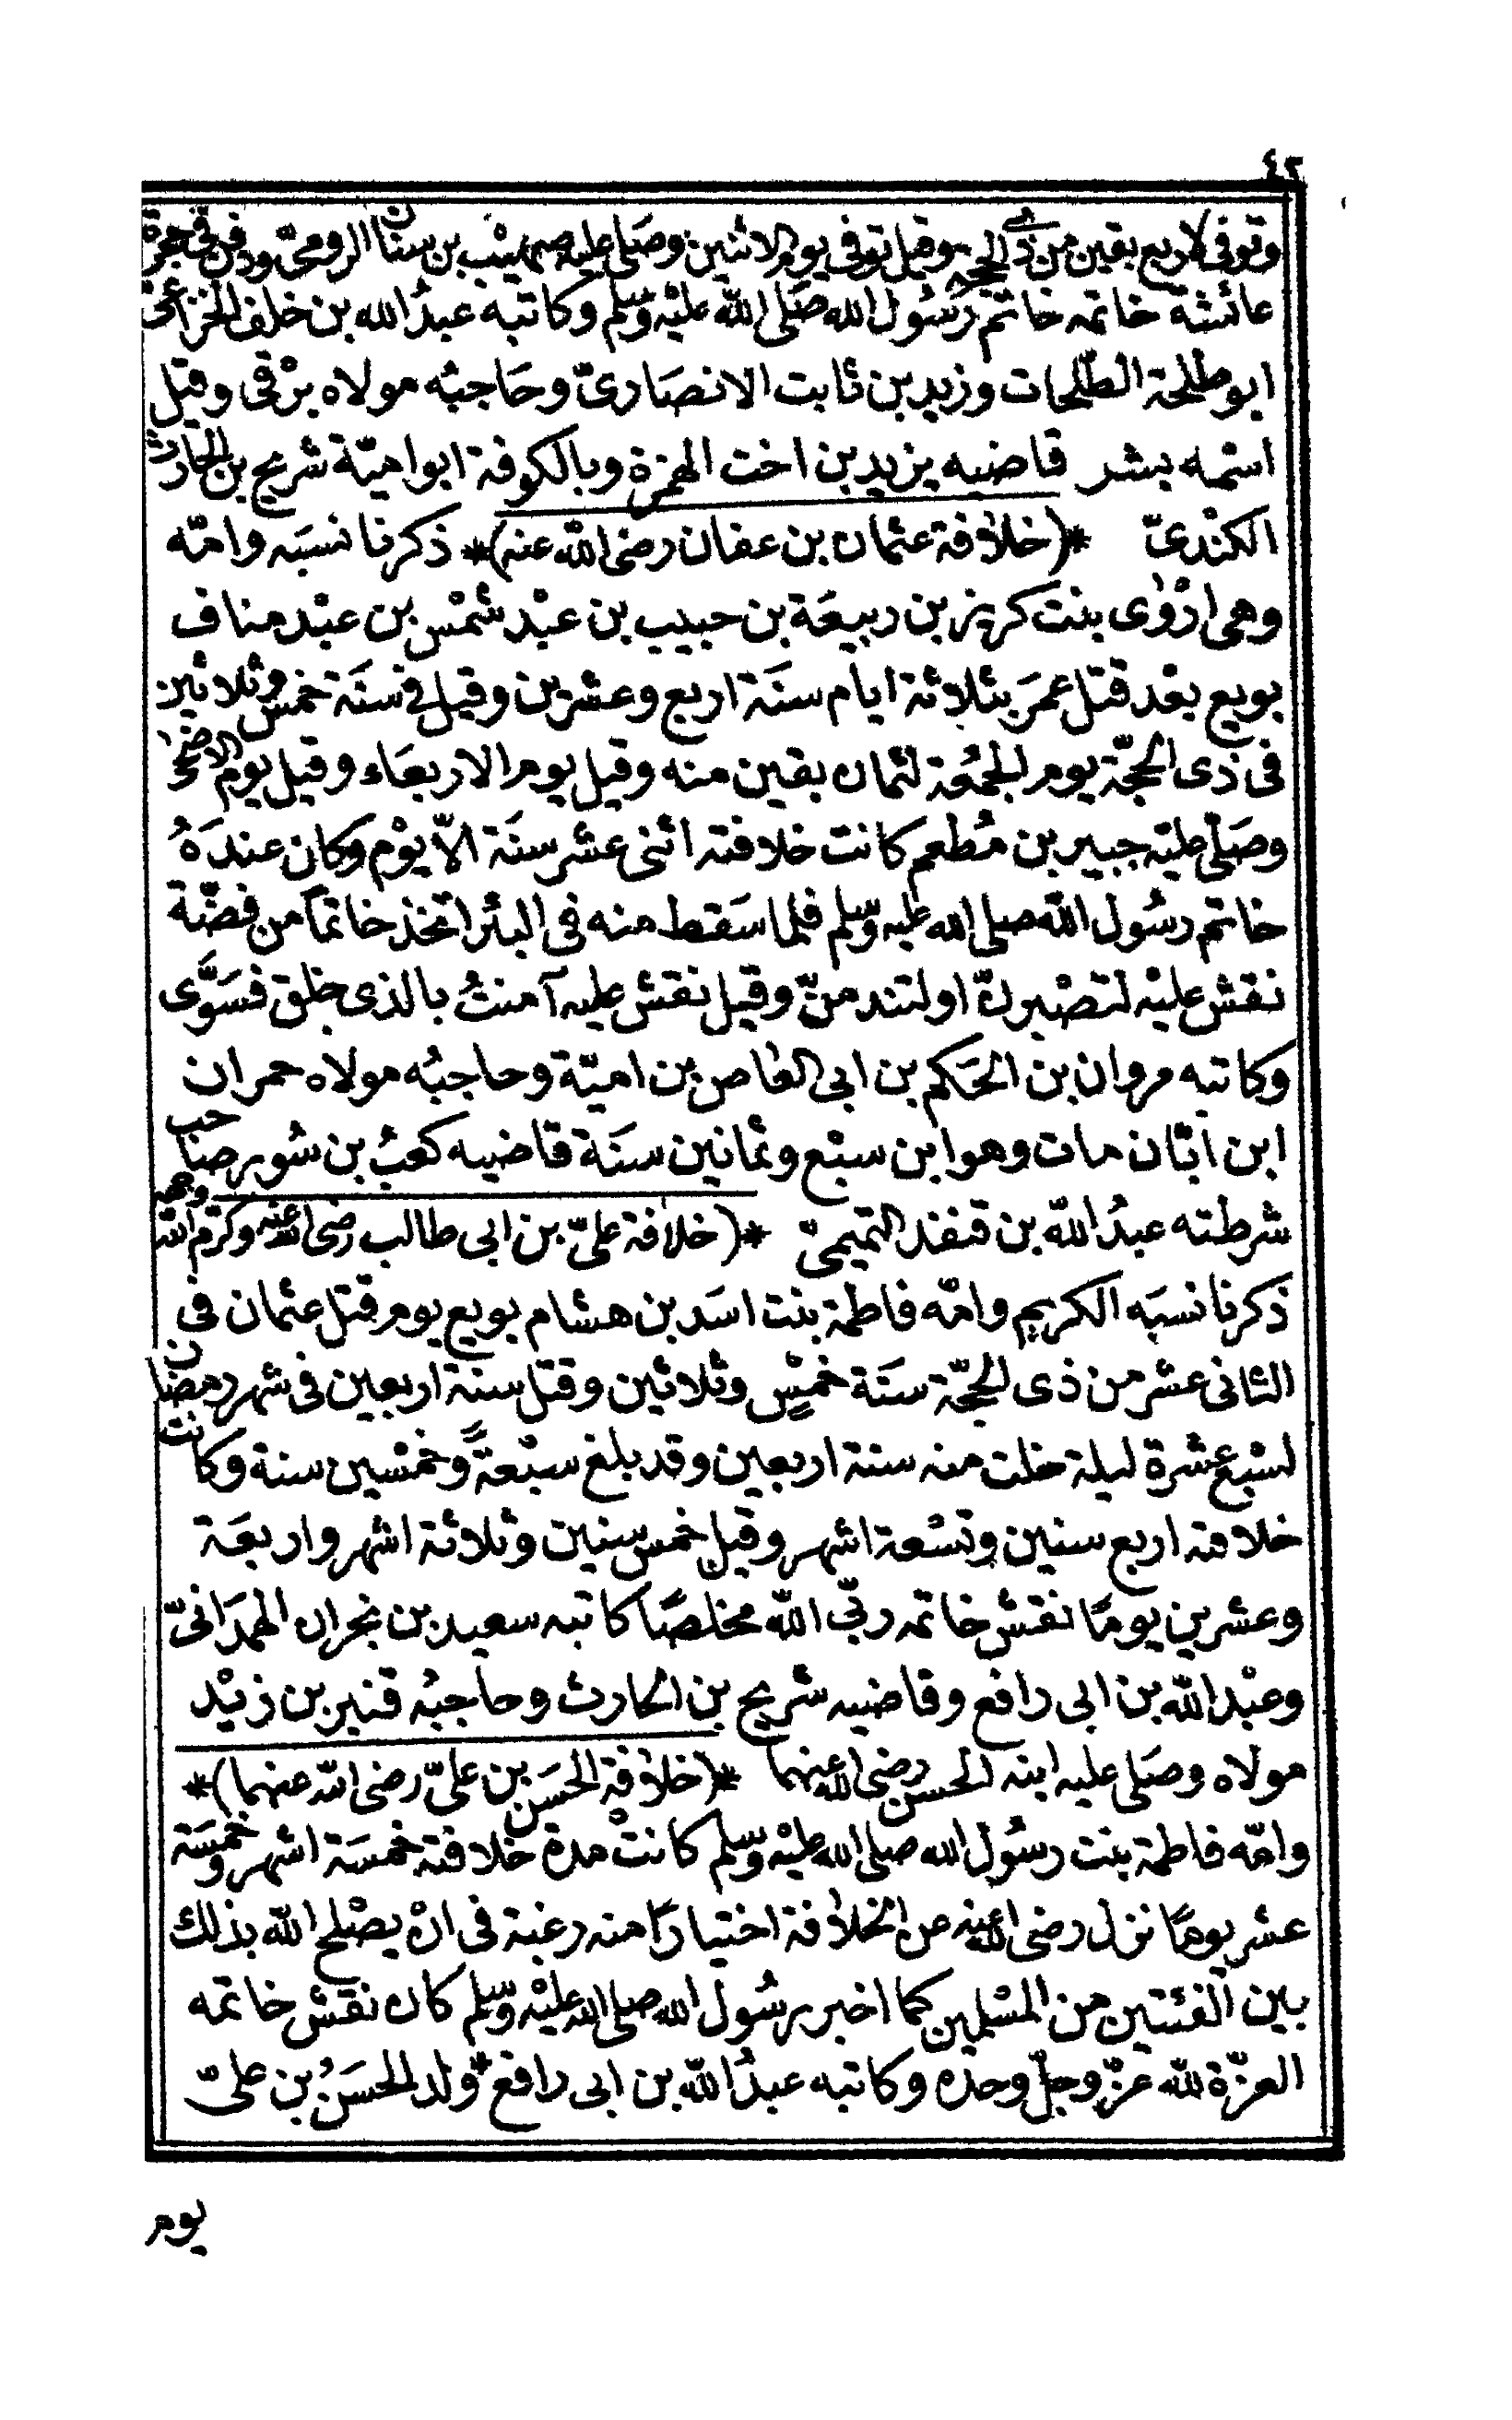 ٤٢
وتوفى لاربع بقين من ذى الحجه وقيل توفى يوم الاثنين وصَلى عليه صهيْب بن سنان الرومىّ ودفن فى حجرة
عائشة خاتمه خاتم رَسُول الله صَلى الله عليْه وسَلم وكاتبه عبدُ الله بن خلف الخزاعى
ابو طلحة الطّلحات وزيد بن ثابت الانصارىّ وحَاجبُه مولاه برْقى وقيل
اسْمه بشر قاضيه يزيد بن اخت الهمزة وبالكوفة ابو اميّة شريح بن الحارث
الكنْدىّ *(خلافة عثمان بن عفان رضى الله عنه)* ذكرنا نسبَه وامّه
وهى ارْوٰى بنت كريز بن ربيعَة بن حبيب بن عبْد شمْس بن عبْد مناف
بويع بعْد قتل عمرَ بثلاثة ايام سنَة اربع وعشرين وقيل فى سنَة خمس وثلاثين
فى ذى الحجّة يوم الجمُعة لثمان بقين منه وقيل يوم الاربعَاء وقيل يوم الاضحى
وصَلّى عليْه جبير بن مُطعم كانت خلافته اثنى عشر سنَة الاّ يوْم وكان عندَهُ
خاتم رسُول الله صلى الله عليه وسّلم فلما سَقط منه فى البئر اتخذ خاتماً من فضّة
نقش عليْه لتصْبرنّ او لتندمنّ وقيل نقش عليه آمنتُ بالذى خلق فسَوَّى
وكاتبه مروان بن الحَكم بن ابى العاص بن اميّة وحاجبُه مولاه حمران
ابن ابّان مات وهو ابن سبْع وثمانين سنَة قاضيه كعبُ بن شور صاحب
شرطته عبدُ الله بن قنفد التميمىّ *(خلافة علىّ بن ابى طالب رضى الله عنه وكرّم الله وجهه
ذكرنا نسبَه الكريم وامّه فاطمة بنت اسَد بن هشام بويع يوم قتل عثمان فى
الثانى عشر من ذى الحجّة سنَة خمْسٍ وثلاثين وقتل سنة اربعين فى شهر رمضان
لسَبْع عشرة ليلة خلت منه سنة اربعين وقد بلغ سبْعةً وخمْسين سنة وكانت
خلافته اربع سنين وتسْعة اشهر وقيل خمس سنين وثلاثة اشهر واربعَة
وعشرين يومًا نقش خاتمه ربّى الله مخلصًا كاتبه سعيد بن نجران الهمدَانىّ
وعبْد الله بن ابى رافع وقاضيه شريح بن الحارث وحاجبُه قنبر بن زيْد
مولاه وصَلى عليه ابنه الحسن رضى الله عنهما *(خلافة الحسَن بن علىّ رضى الله عنهما)*
وامّه فاطمة بنت رسُول الله صلى الله عليْه وسّلم كانتْ مدة خلافته خمسَة اشهر وخمسَة
عشر يومًا نزل رضى الله عنه عن الخلافة اختيارًا منه رغبة فى انْ يصْلح الله بذلك
بين الفئتين من المسْلمين كما اخبر رسُول الله صلى الله عليْه وسّلم كان نقش خاتمه
العزّة لله عزّ وجلّ وحده وكاتبه عبدُ الله بن ابى رافع ولد الحسَنُ بن علىّ
يوم